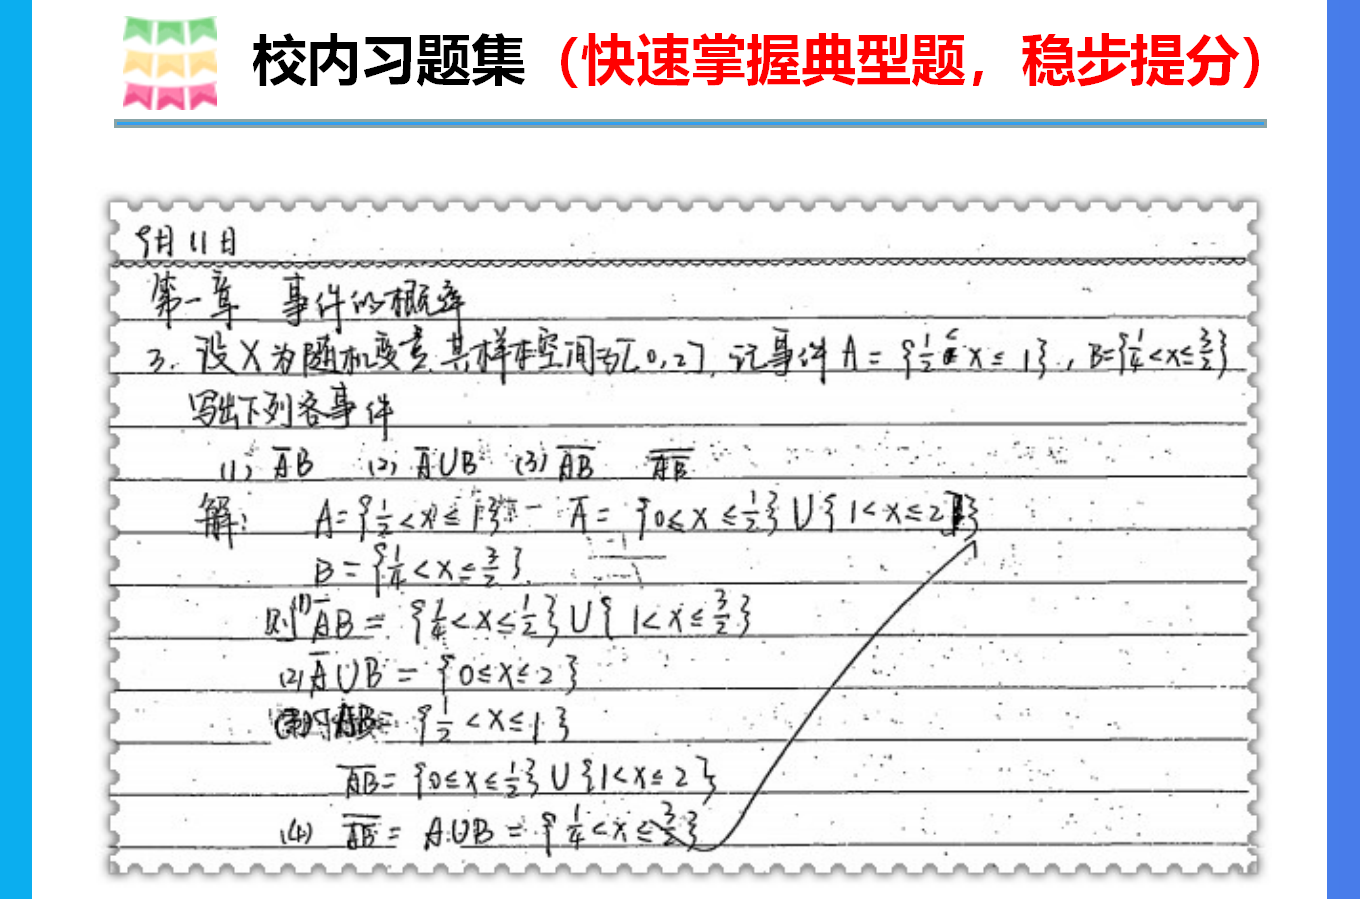 校内习题集（快速掌握典型题，稳步提分）
9月11日
第一章 事件的概率
3. 设X为随机变量,其样本空间为[0,2],记事件A={1/2<x≤1}, B={1/4<x≤3/2}
写出下列各事件
(1) A̅B (2) A̅∪B (3) \overline{AB} \overline{A̅B̅}
解: A={1/2<x≤1} A̅={0≤x≤1/2}∪{1<x≤2}
B={1/4<x≤3/2}
则(1) A̅B={1/4<x≤1/2}∪{1<x≤3/2}
(2) A̅∪B={0≤x≤2}
AB={1/2<x≤1}
\overline{AB}={0≤x≤1/2}∪{1<x≤2}
(4) \overline{A̅B̅}=A∪B={1/4<x≤3/2}